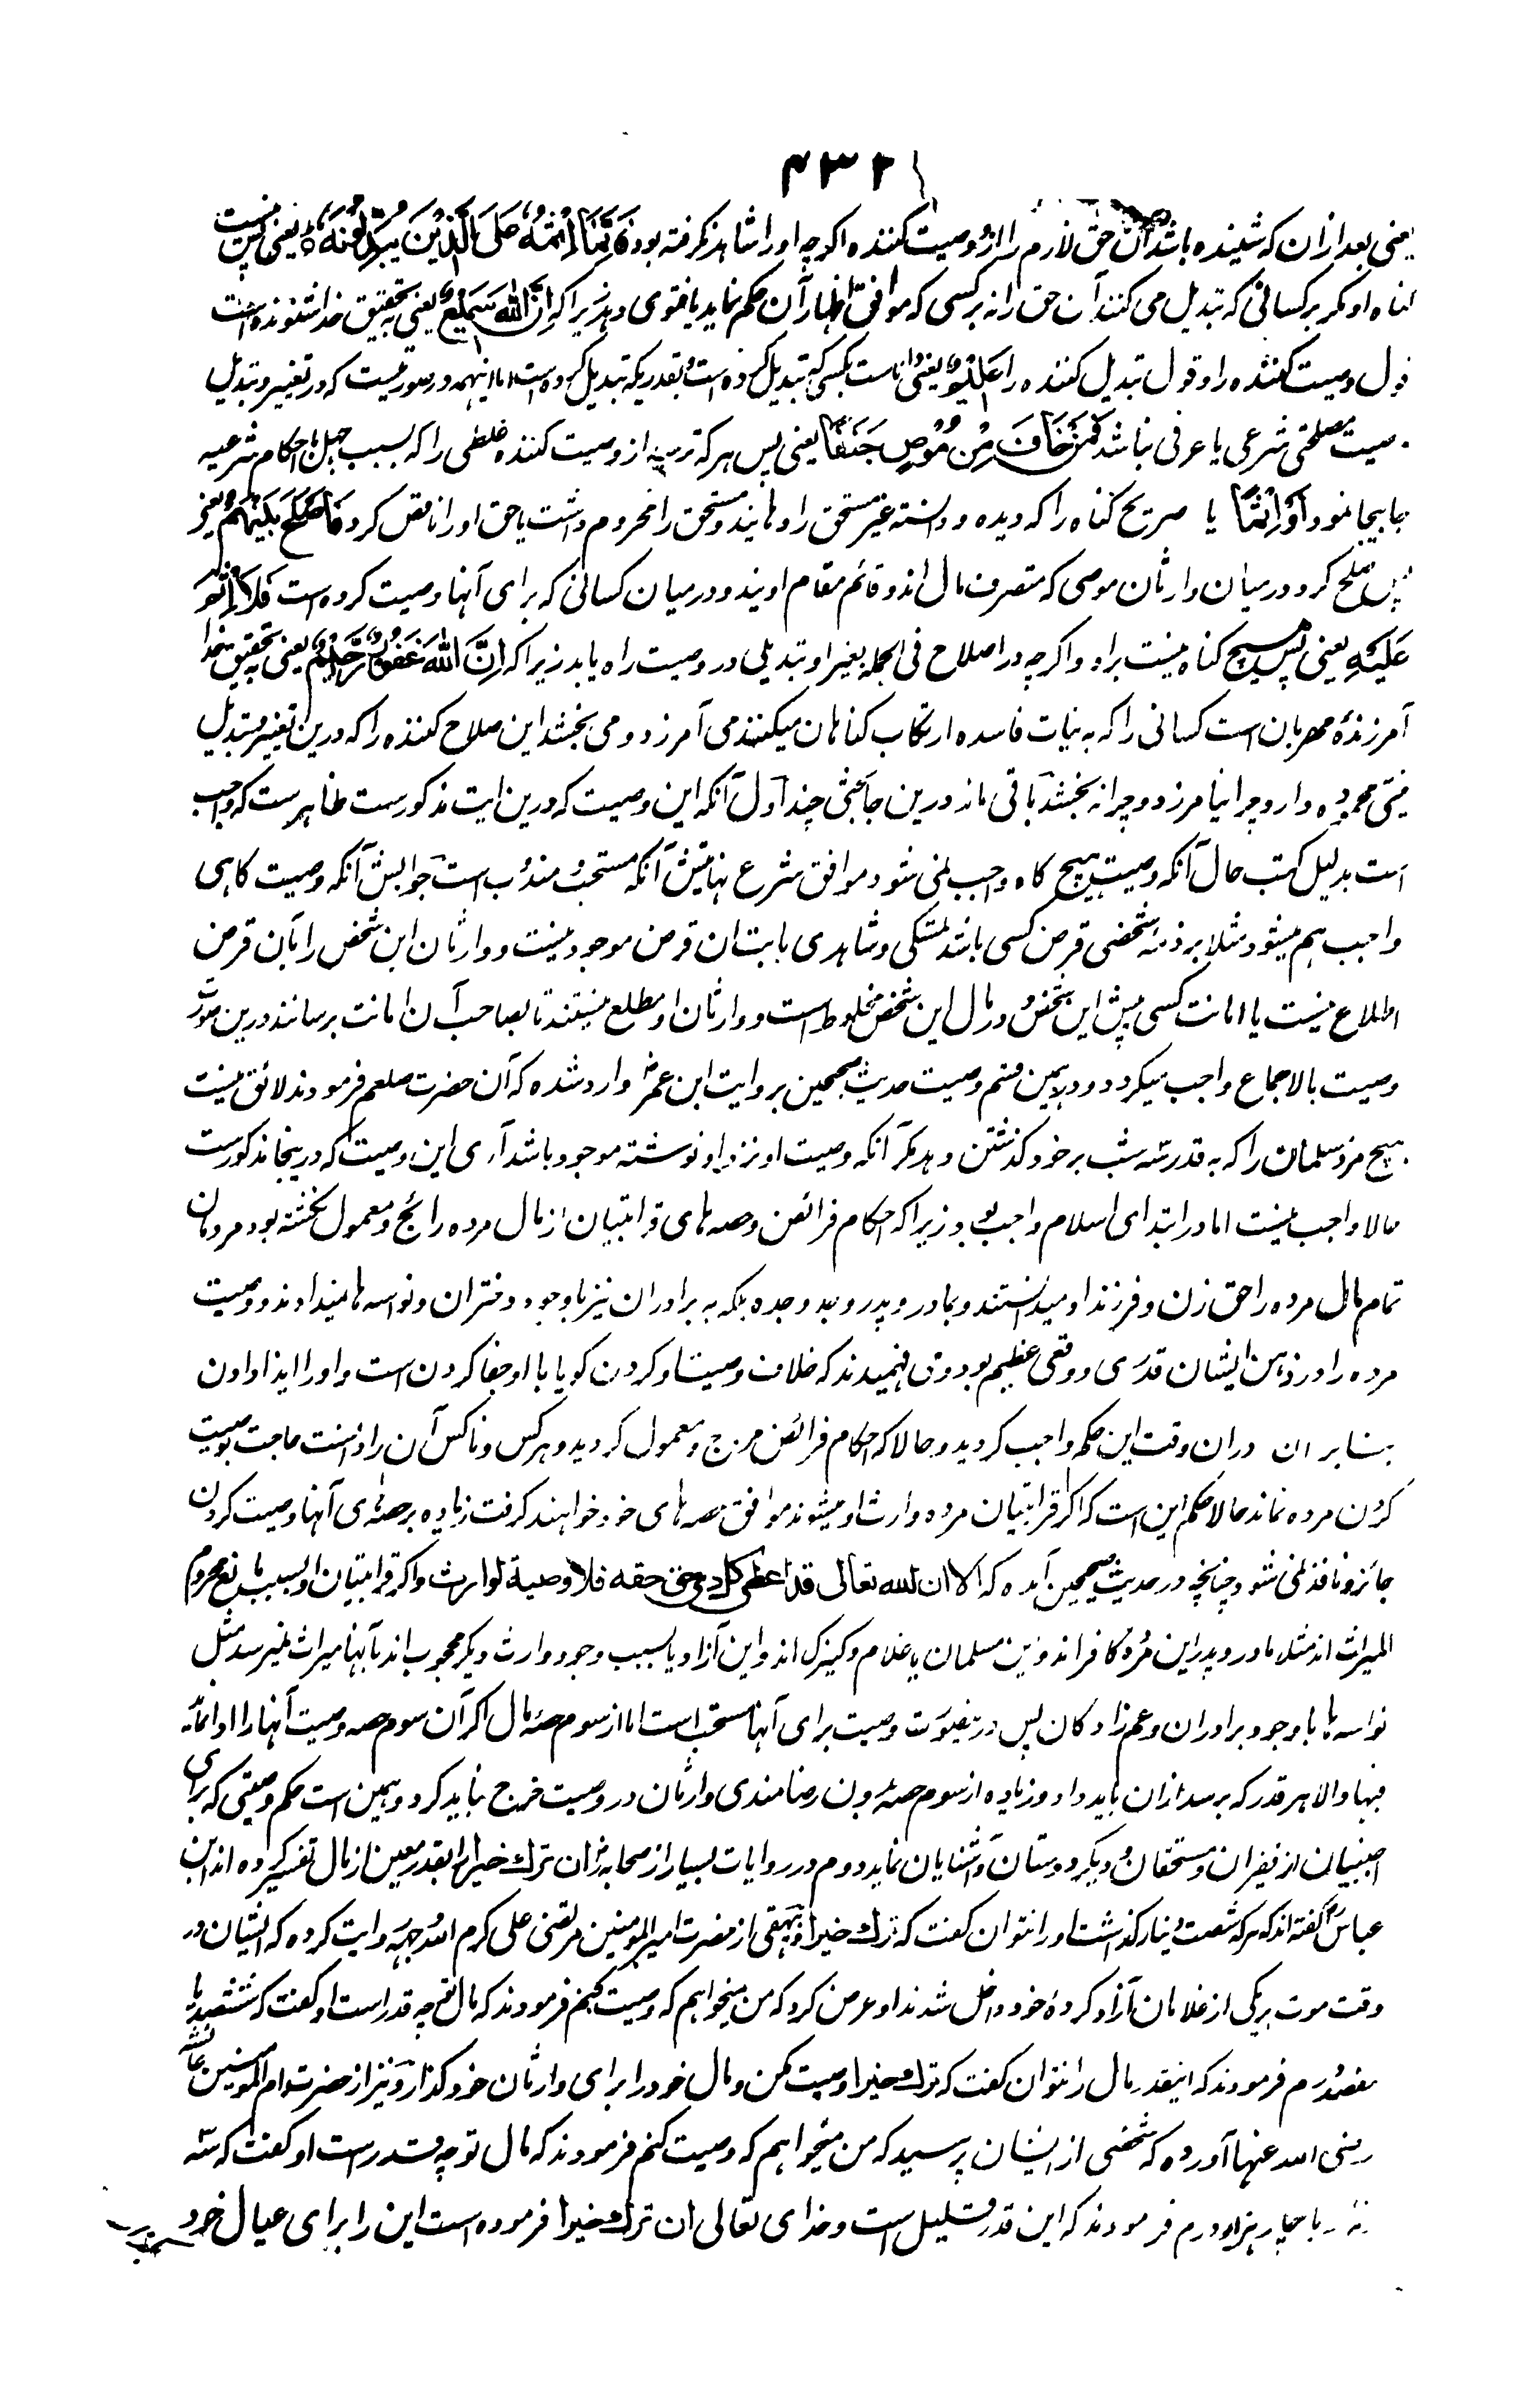 ۴۳۲
یعنی بعد ازان که شنیده باشد آن حق لازم را از وصیت کننده اگرچه او را شاهد نگرفته بود فَاِنَّمَا اِثْمُهُ عَلَی الَّذِیْنَ یُبَدِّلُوْنَهُ یعنی پس نیست
گناه او مگر بر کسانی که تبدیل می کنند آن حق را نه بر کسی که موافق اظهار آن حکم نماید یا فتوی دهد زیرا که اِنَّ اللهَ سَمِیْعٌ یعنی به تحقیق خدا شنونده است
قول وصیت کننده را و قول تبدیل کننده را عَلِیْمٌ یعنی دانا ست بکسی که تبدیل کرده است و بقدریکه تبدیل کرده است اما اینهمه در صورتیست که در تغییر و تبدیل
وصیت مصلحتی شرعی یا عرفی نباشد فَمَنْ خَافَ مِنْ مُوْصٍ جَنَفًا یعنی پس هر که ترسید از وصیت کننده غلطی را که بسبب جهل باحکام شرعیه
جابیجا نمود اَوْ اِثْمًا یا صریح گناه را که دیده و دانسته غیر مستحق را دهانید و مستحق را محروم داشت یا حق او را ناقص کرد فَاَصْلَحَ بَیْنَهُمْ یعنی
پس صلح کرد درمیان وارثان موصی که متصرف مال اند و قائم مقام اویند و درمیان کسانی که برای آنها وصیت کرده است فَلَا اِثْمَ
عَلَیْهِ یعنی پس هیچ گناه نیست براو و اگرچه در اصلاح فی الجمله تغییر او تبدیلی در وصیت راه یابد زیرا که اِنَّ اللهَ غَفُوْرٌ رَّحِیْمٌ یعنی تحقیق خدا
آمرزندهٔ مهربان است کسانی را که به نیات فاسده ارتکاب گناهان میکنند می آمرزد و می بخشد این صلاح کننده را که درین تغییر و تبدیل
نیتی محموده دارد چرا نیامرزد و چرا نه بخشد باقی ماند درین جا بحثی چند اول آنکه این وصیت که درین ایت مذکورست ظاهرست که واجب
است بدلیل کتب حال آنکه وصیت هیچ گاه واجب نمی شود موافق شرع نهایتش آنکه مستحب و مندوب است جوابش آنکه وصیت گاهی
واجب هم میشود مثلا بر ذمهٔ شخصی قرض کسی باشد تمسکی و شاهدی بابت ان قرض موجود نیست و وارثان این شخص را بآن قرض
اطلاع نیست یا امانت کسی پیش این شخص و در مال این شخص مخلوط است و وارثان او مطلع نیستند تا بصاحب آن امانت برسانند درین صورت
وصیت بالاجماع واجب میگردد و در همین قسم وصیت حدیث صحیحین بروایت ابن عمر وارد شده که آن حضرت صلعم فرمودند لائق نیست
هیچ مرد مسلمان را که به قدر سه شب بر خود گذشتن دهد مگر آنکه وصیت او نزد او نوشته موجود باشد آری این وصیت که در ینجا مذکورست
حالا واجب نیست اما در ابتدای اسلام واجب بود زیرا که احکام فرائض و حصه های قرابتیان از مال مرده رائج و معمول نگشته بود مردمان
تمام مال مرده را حق زن و فرزند او میدانستند و بمادر و پدر و جد و جده بلکه به برادران نیز باوجود دختران و نواسه ها نمیدادند و وصیت
مرده را در ذهن ایشان قدری و وقعی عظیم بود و می فهمیدند که خلاف وصیت او کردن گویا با او جفا کردن است و او را ایذا دادن
بنابران دران وقت این حکم واجب گردید و حالا که احکام فرائض مروج و معمول گردید و هرکس و ناکس آن را دانست حاجت بوصیت
کردن مرده نماند حالا حکم این است که اگر قرابتیان مرده وارث او میشوند موافق حصه های خود خواهند گرفت زیاده بر حصهای آنها وصیت کردن
جائز و نافذ نمی شود چنانچه در حدیث صحیحین آمده که الا ان الله تعالی قد اعطی کل ذی حق حقه فلا وصیة لوارث و اگر قرابتیان او بسبب مانع محروم
المیراث اند مثلا مادر و پدر این مرده کافر اند و این مسلمان یا غلام و کنیزک اند و این آزاد یا بسبب وجود وارث دیگر محجوب اند بآنها میراث نمیرسد مثل
نواسه ها با وجود برادران و عم زادگان پس درینصورت وصیت برای آنها مستحب است اما از سوم حصهٔ مال اگر آن سوم حصه وصیت آنها را ادا نماید
فبها والا هر قدر که برسد ازان باید داد و زیاده از سوم حصه بدون رضامندی وارثان در وصیت خرج نباید کرد و همین است حکم وصیتی که برای
اجنبیان از فقیران و مستحقان و دیگر دوستان و آشنایان نماید دوم در روایات بسیار از صحابه ان ترك خیرا را بقدر معین از مال تفسیر کرده اند ابن
عباس گفته اند که هر که شصت دینار نگذاشت او را نتوان گفت که ترك خیرا و بیهقی از حضرت امیر المومنین مرتضی علی کرم الله وجهه روایت کرده که ایشان در
وقت موت یکی از غلامان آزاد کردهٔ خود داخل شدند او عرض کرد که من میخواهم که وصیت کنم فرمودند که مال تو چه قدر است او گفت که ششصد یا
هفصد درم فرمودند که اینقدر مال را نتوان گفت که ترك خیرا وصیت مکن و مال خود را برای وارثان خود گذار و نیز از حضرت ام المومنین عائشه
رضی الله عنها آورده که شخصی از ایشان پرسید که من میخواهم که وصیت کنم فرمودند که مال تو چه قدرست او گفت که سه
هزار یا چهار هزار درم فرمودند که این قدر قلیل است و خدای تعالی ان ترك خیرا فرموده است این را برای عیال خود